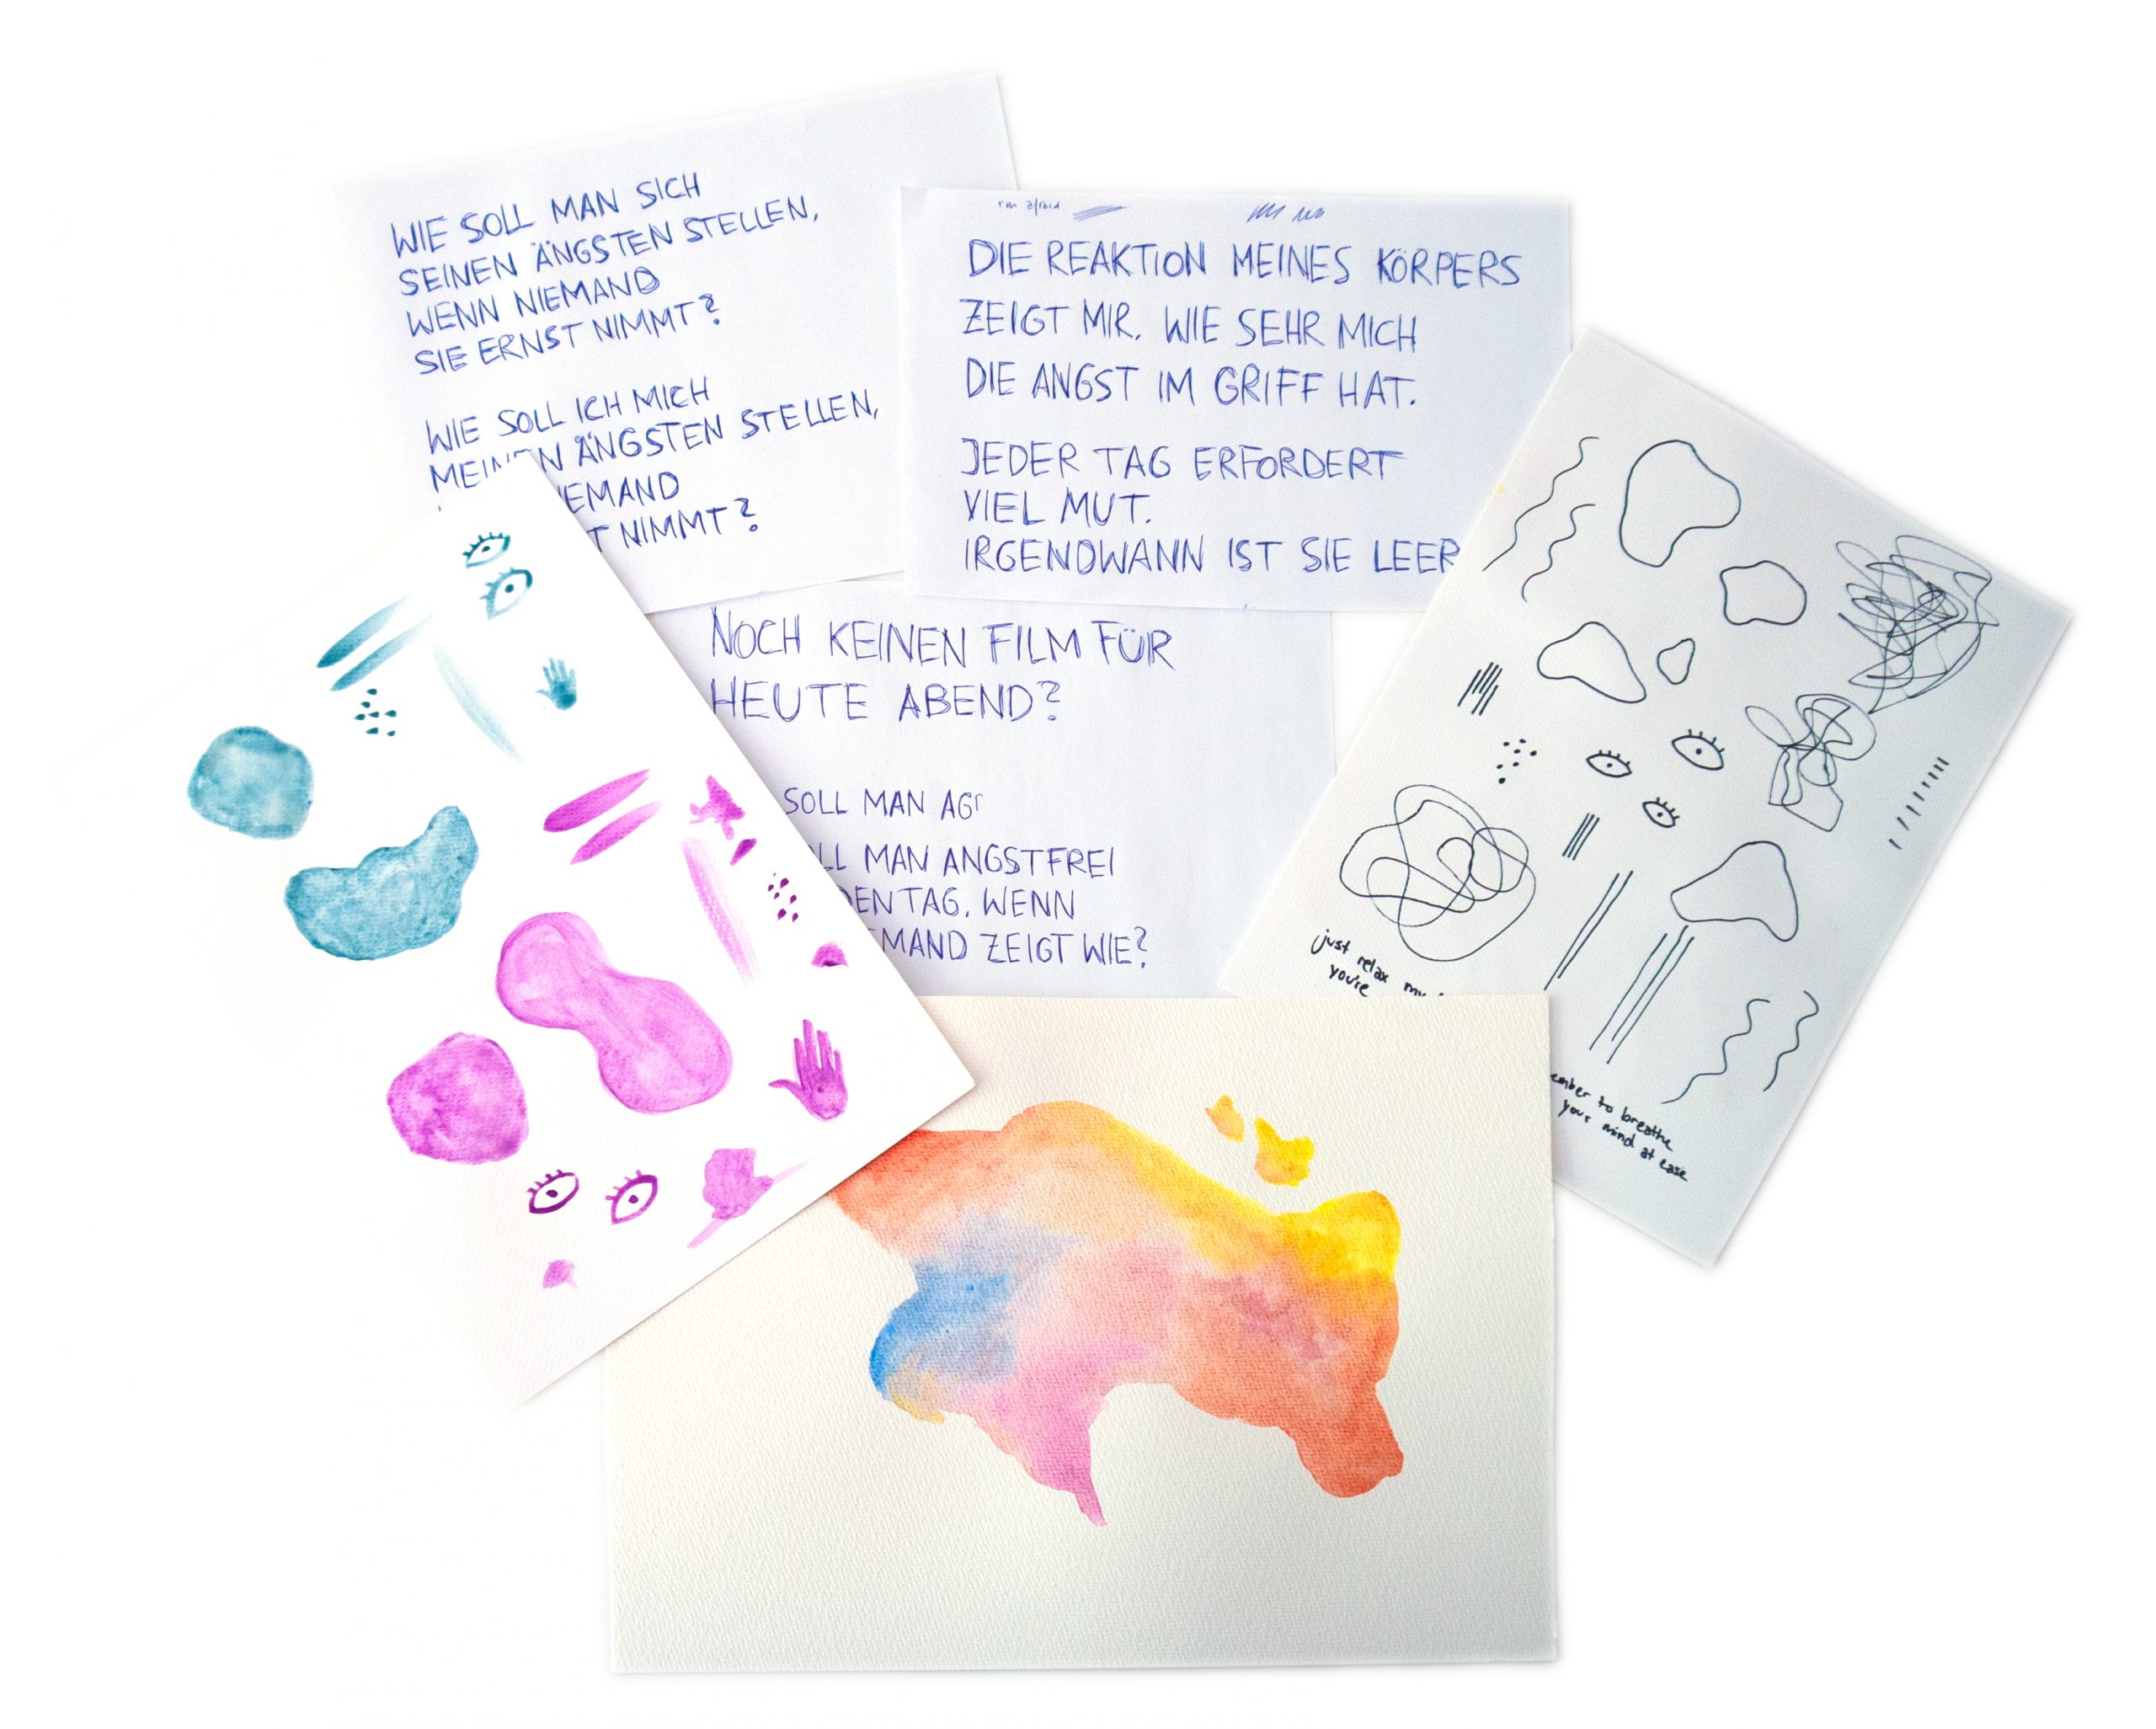 WIE SOLL MAN SICH
SEINEN ÄNGSTEN STELLEN,
WENN NIEMAND
SIE ERNST NIMMT?
WIE SOLL ICH MICH
MEINEN ÄNGSTEN STELLEN,
NIEMAND
NIMMT?
i'm afraid
DIE REAKTION MEINES KÖRPERS
ZEIGT MIR, WIE SEHR MICH
DIE ANGST IM GRIFF HAT.
JEDER TAG ERFORDERT
VIEL MUT.
IRGENDWANN IST SIE LEER
NOCH KEINEN FILM FÜR
HEUTE ABEND?
SOLL MAN
MAN ANGSTFREI
DEN TAG, WENN
ZEIGT WIE?
just relax my
you're
to breathe
your mind at ease